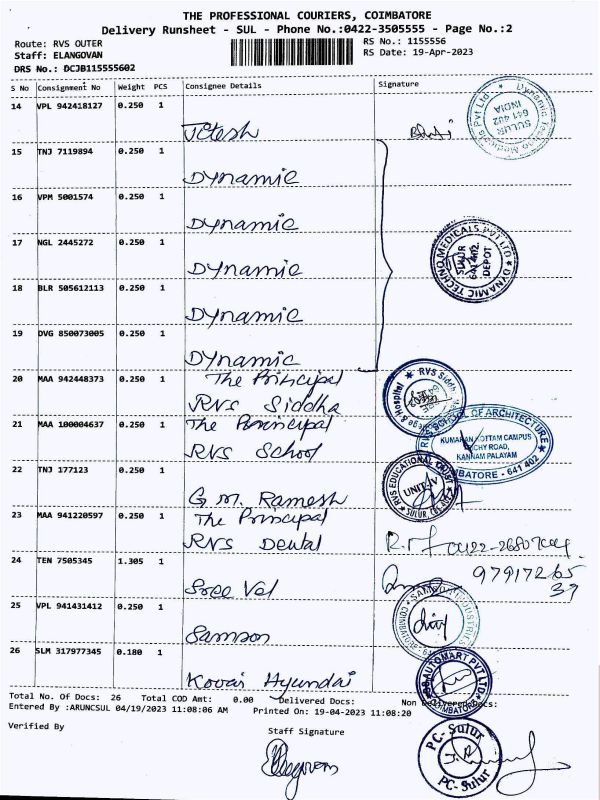 THE PROFESSIONAL COURIERS, COIMBATORE
Delivery Runsheet - SUL - Phone No.:0422-3505555 - Page No.:2
Route: RVS OUTER
RS No.: 1155556
Staff: ELANGOVAN
RS Date: 19-Apr-2023
DRS No.: DCJB115555602
S No Consignment No Weight PCS Consignee Details Signature
14 VPL 942418127 0.250 1
Jetesh
Dynamic Techno Medicals Pvt Ltd
SULUR
641 402
INDIA
15 TNJ 7119894 0.250 1
Dynamic
16 VPM 5001574 0.250 1
Dynamic
17 NGL 2445272 0.250 1
Dynamic
DYNAMIC TECHNO MEDICALS PVT LTD
SULUR
641 402.
DEPOT
18 BLR 505612113 0.250 1
Dynamic
19 DVG 850073005 0.250 1
Dynamic
20 MAA 942448373 0.250 1
The Principal
RVS Siddha
RVS Siddha
& Hospital
21 MAA 100004637 0.250 1
The Principal
RVS School
RVS SCHOOL OF ARCHITECTURE
KUMARAN KOTTAM CAMPUS
TRICHY ROAD,
KANNAM PALAYAM
COIMBATORE - 641 402
22 TNJ 177123 0.250 1
G.M. Ramesh
RVS EDUCATIONAL TRUST
UNIT-IV
SULUR,
23 MAA 941220597 0.250 1
The Principal
RVS Dental
24 TEN 7505345 1.305 1
Sree Vel
97917265
39
25 VPL 941431412 0.250 1
Samson
SAMSON INDUSTRIES
COIMBATORE
26 SLM 317977345 0.180 1
Kovai Hyundai
AUTOMART PVT LTD
COIMBATORE
Total No. Of Docs: 26 Total COD Amt: 0.00 Delivered Docs: Non Delivered Docs:
Entered By :ARUNCSUL 04/19/2023 11:08:06 AM Printed On: 19-04-2023 11:08:20
Verified By
Staff Signature
Elangovan
PC-Sulur
PC-Sulur